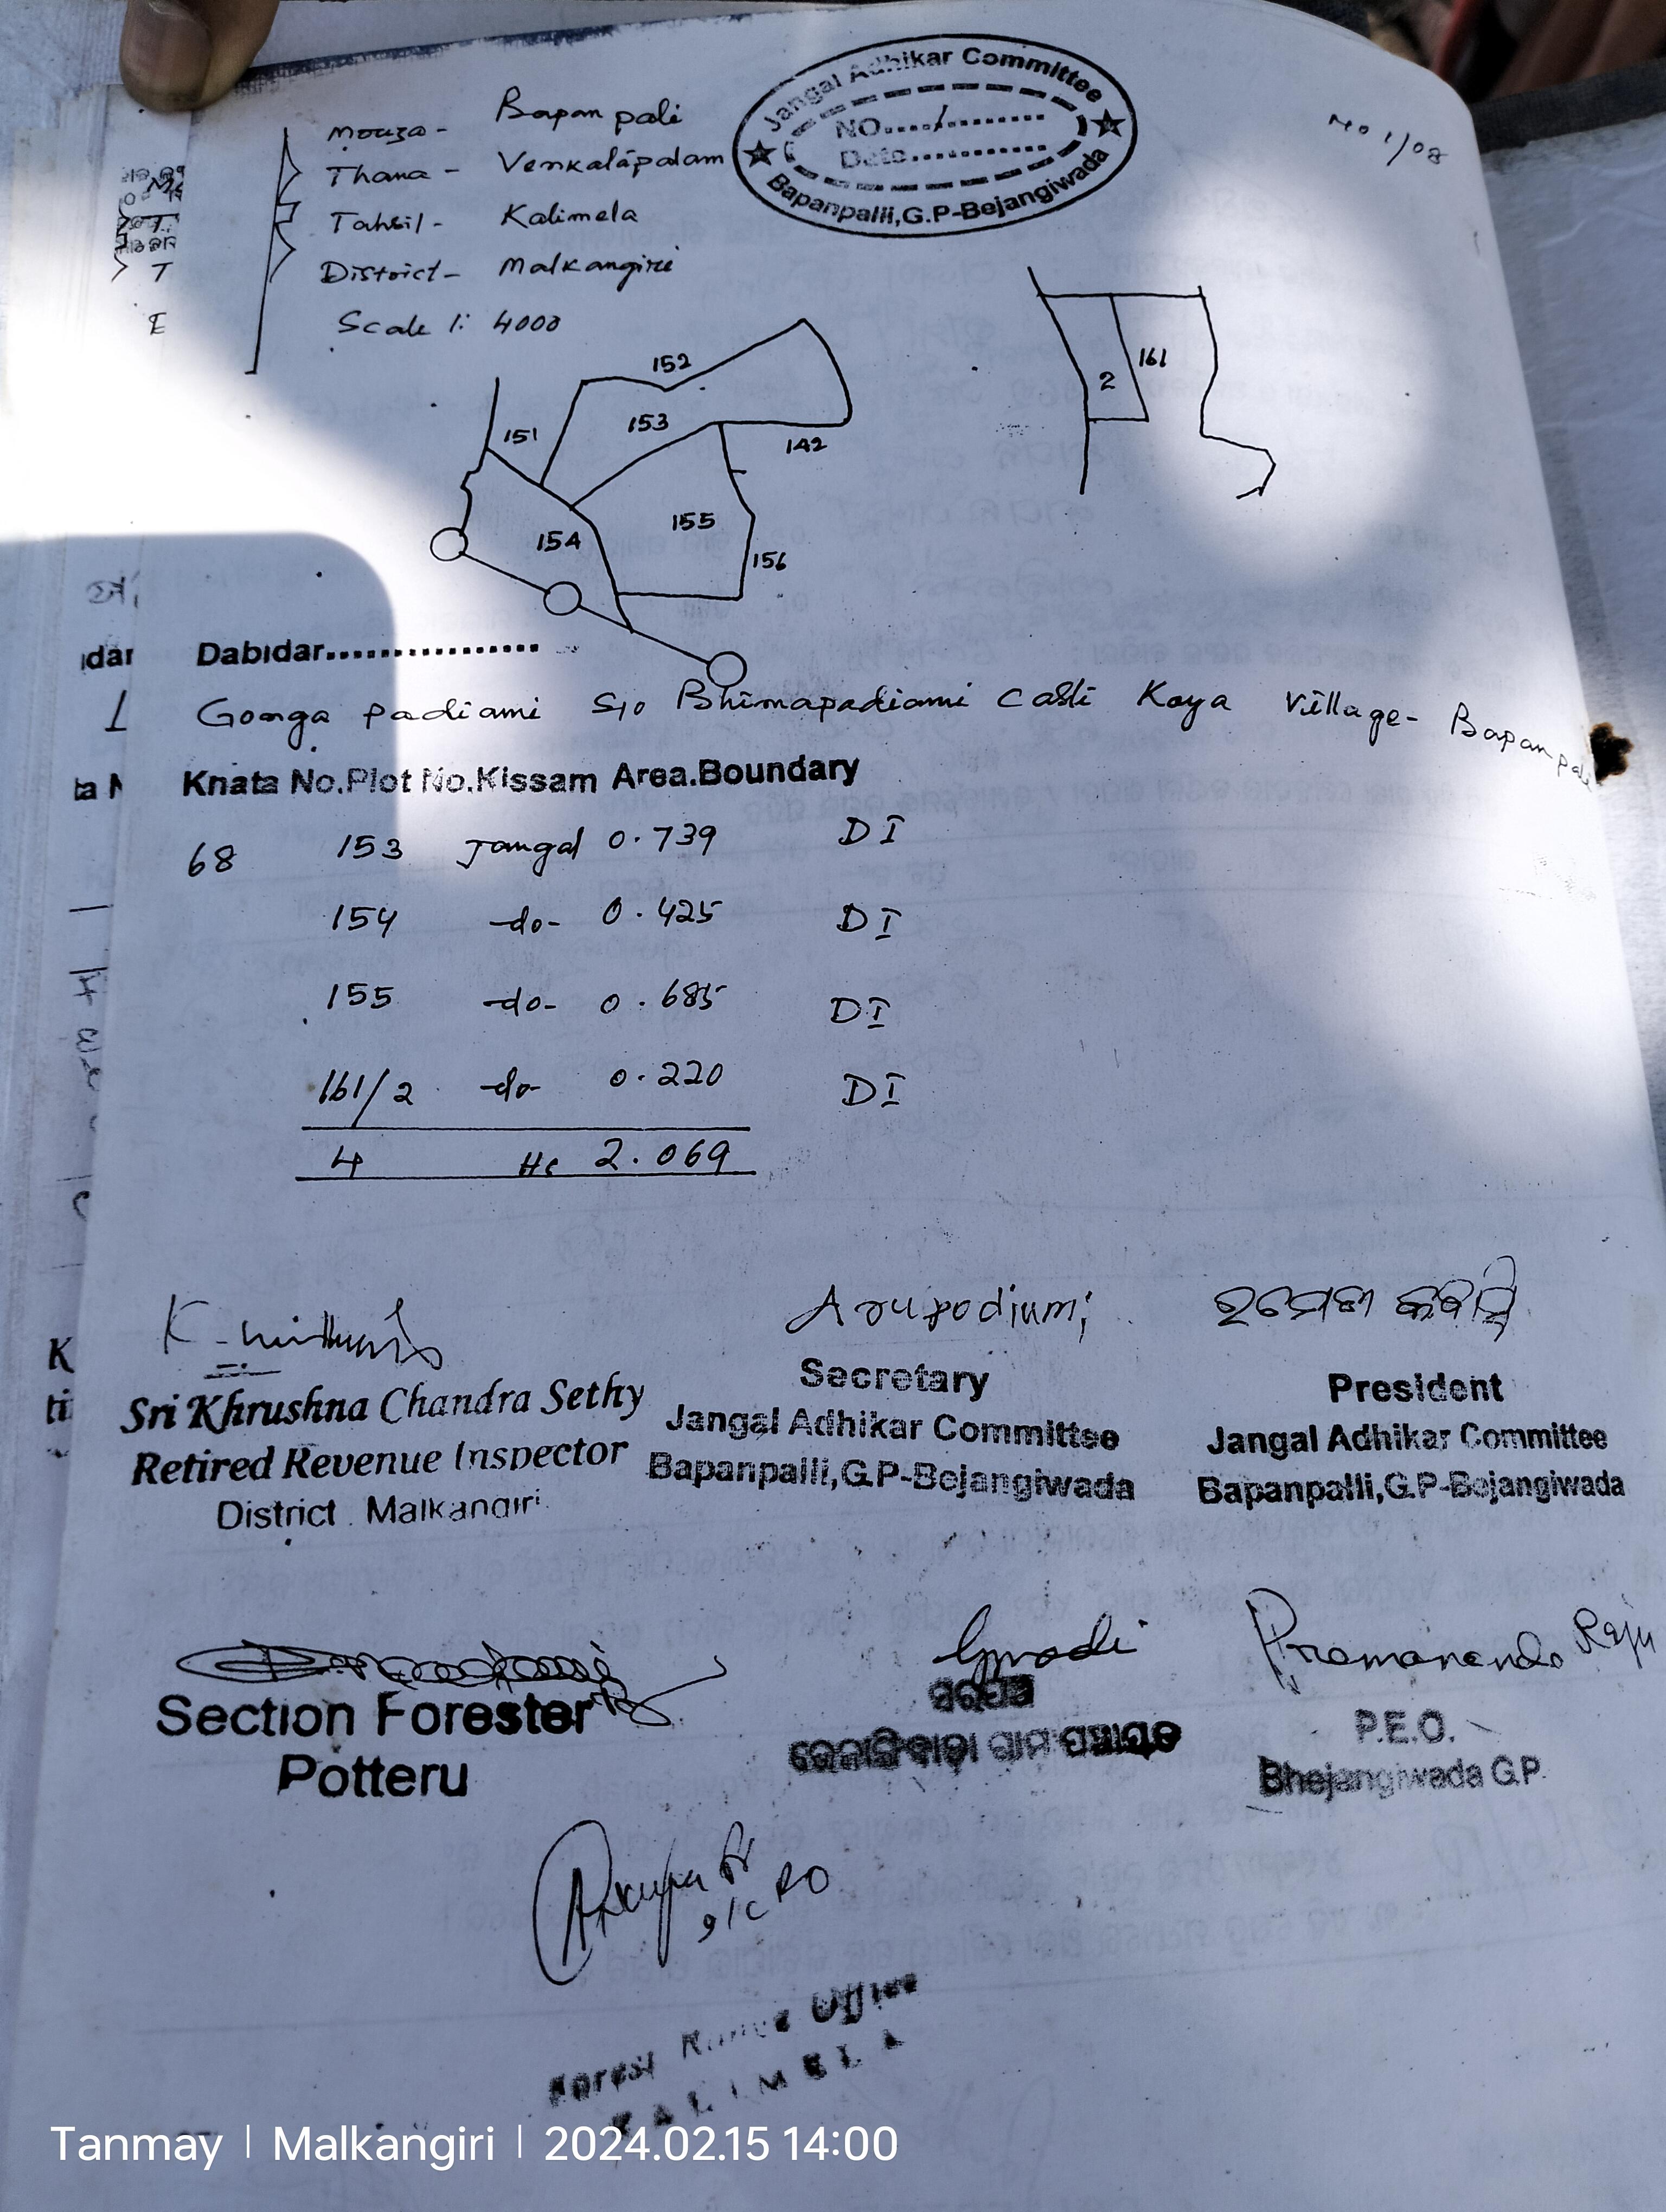 Jangal Adhikar Committee
NO....1............
Date............
Bapanpalli,G.P-Bejangiwada
No 1/08
Mouza- Bapanpali
Thana - Venkalapalam
Tahsil- Kalimela
District- Malkangiri
Scale 1: 4000
152
151
153
142
154
155
156
161
2
Dabidar................
Gonga padiami S/o Bhimapadiami Caste Koya Village- Bapanpali
Khata No.Plot No.Kissam Area.Boundary
68 153 Jangal 0.739 DI
154 -do- 0.425 DI
155 -do- 0.685 DI
161/2 -do- 0.220 DI
4 Hc 2.069
Arupodiumi
Sri Khrushna Chandra Sethy
Retired Revenue Inspector
District Malkangiri
Secretary
Jangal Adhikar Committee
Bapanpalli,G.P-Bejangiwada
President
Jangal Adhikar Committee
Bapanpalli,G.P-Bejangiwada
Section Forester
Potteru
ସରପଞ୍ଚ
ଗ୍ରାମ ପଞ୍ଚାୟତ
Premananda Raju
P.E.O.
Bhejangiwada G.P.
Forest Range Office
KALIMELA
Tanmay | Malkangiri | 2024.02.15 14:00